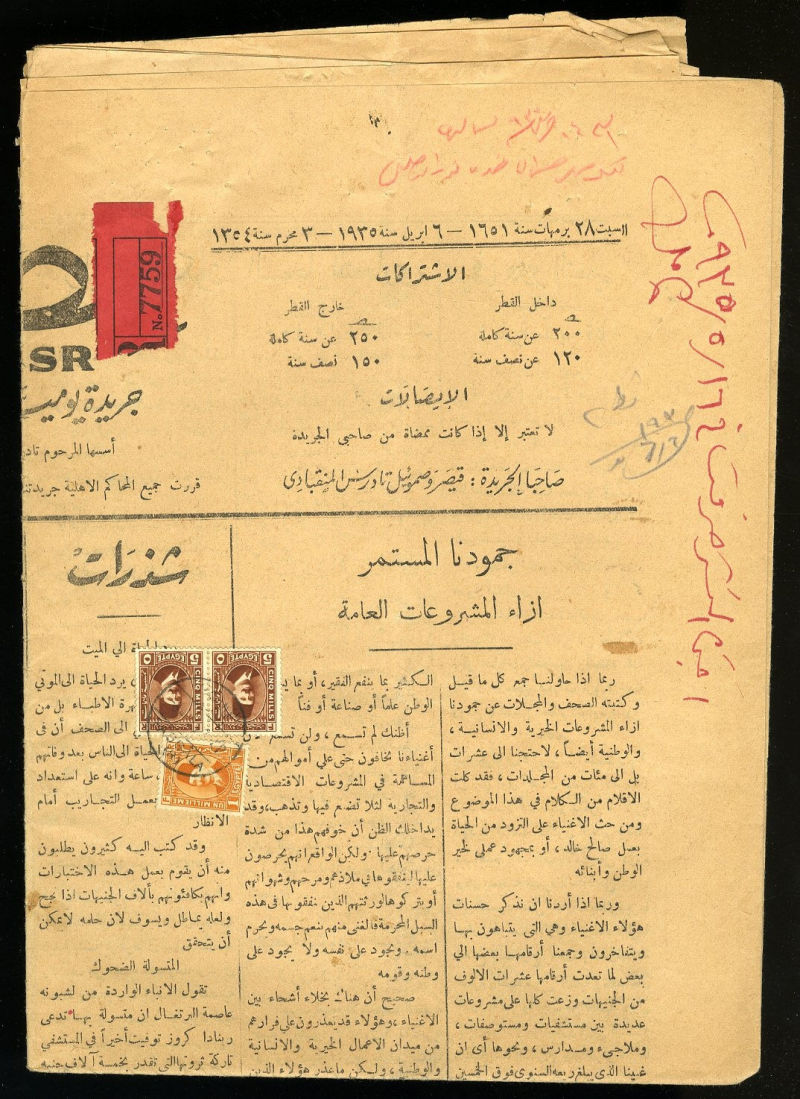 السبت ٢٨ برمهات سنة ١٦٥١ — ٦ ابريل سنة ١٩٣٥ — ٣ محرم سنة ١٣٥٤
الاشتراكات
داخل القطر
٢٠٠ عن سنة كاملة
١٢٠ عن نصف سنة
خارج القطر
٢٥٠ عن سنة كاملة
١٥٠ نصف سنة
الإيصالات
لا تعتبر إلا إذا كانت ممضاة من صاحبي الجريدة
صاحبا الجريدة: قيصر وصموئيل تادرس المنقبادي
No. 7759
SR
جريدة يومية
أسسها المرحوم تادر
قررت جميع المحاكم الاهلية جريدتنا
جمودنا المستمر
ازاء المشروعات العامة
ربما اذا حاولنا جمع كل ما قيل
وكتبته الصحف والمجلات عن جمودنا
ازاء المشروعات الخيرية والانسانية،
والوطنية أيضاً، لاحتجنا الى عشرات
بل الى مئات من المجلدات، فقد كلت
الاقلام من الكلام في هذا الموضوع
ومن حث الاغنياء على التزود من الحياة
بعمل صالح خالد، أو بمجهود عملي لخير
الوطن وأبنائه
وربما اذا أردنا ان نذكر حسنات
هؤلاء الاغنياء وهي التي يتباهون بها
ويتفاخرون وجمعنا أرقامها بعضها الي
بعض لما تعدت أرقامها عشرات الالوف
من الجنيهات وزعت كلها على مشروعات
عديدة بين مستشفيات ومستوصفات،
وملاجىء ومدارس، ونحوها أى ان
غنينا الذى يبلغ ريعه السنوى فوق الخمسين
الكثير بما ينفع الفقير، أو بما
الوطن علماً أو صناعة أو فناً
أظنك لم تسمع، ولن تسمع
أغنياءنا يخافون حتى علي أموالهم من
المساهمة في المشروعات الاقتصادية
والتجارية لئلا تضيع فيها وتذهب، وقد
يداخلك الظن أن خوفهم هذا من شدة
حرصهم عليها. ولكن الواقع انهم يحرصون
عليها لينفقوها في ملاذهم ومرحهم وشهواتهم
أو يتركوها لورثتهم الذين ينفقونها في هذه
السبل المحرمة فالغنى منهم ينعم جسمه ويحرم
اسمه. ويجود على نفسه ولا يجود على
وطنه وقومه
صحيح أن هناك بخلاء أشحاء بين
الاغنياء، وهؤلاء قد يعذرون علي فرارهم
من ميدان الاعمال الخيرية والانسانية
والوطنية، ولكن ما عذر هؤلاء الذين
شذرات
الي الميت
يرد الحياة الى الموتي
الاطباء بل من
الى الصحف أن فى
الحياة الى الناس بعد وفاتهم
ساعة وانه على استعداد
بعمل التجاريب أمام
الانظار
وقد كتب اليه كثيرون يطلبون
منه أن يقوم بعمل هذه الاختبارات
وانهم يكافئونه بألاف الجنيهات اذا نجح
ولعله يماطل ويسوف لان حلمه لا يمكن
أن يتحقق
المتسولة الضحوك
تقول الانباء الواردة من لشبونه
عاصمة البرتغال ان متسولة بها تدعى
رينادا كروز توفيت أخيراً في المستشفي
تاركة ثروتها التي تقدر بخمسة آلاف جنيه
5 EGYPTE ٥
CINQ MILLS
5 EGYPTE ٥
CINQ MILLS
UN MILLIEME